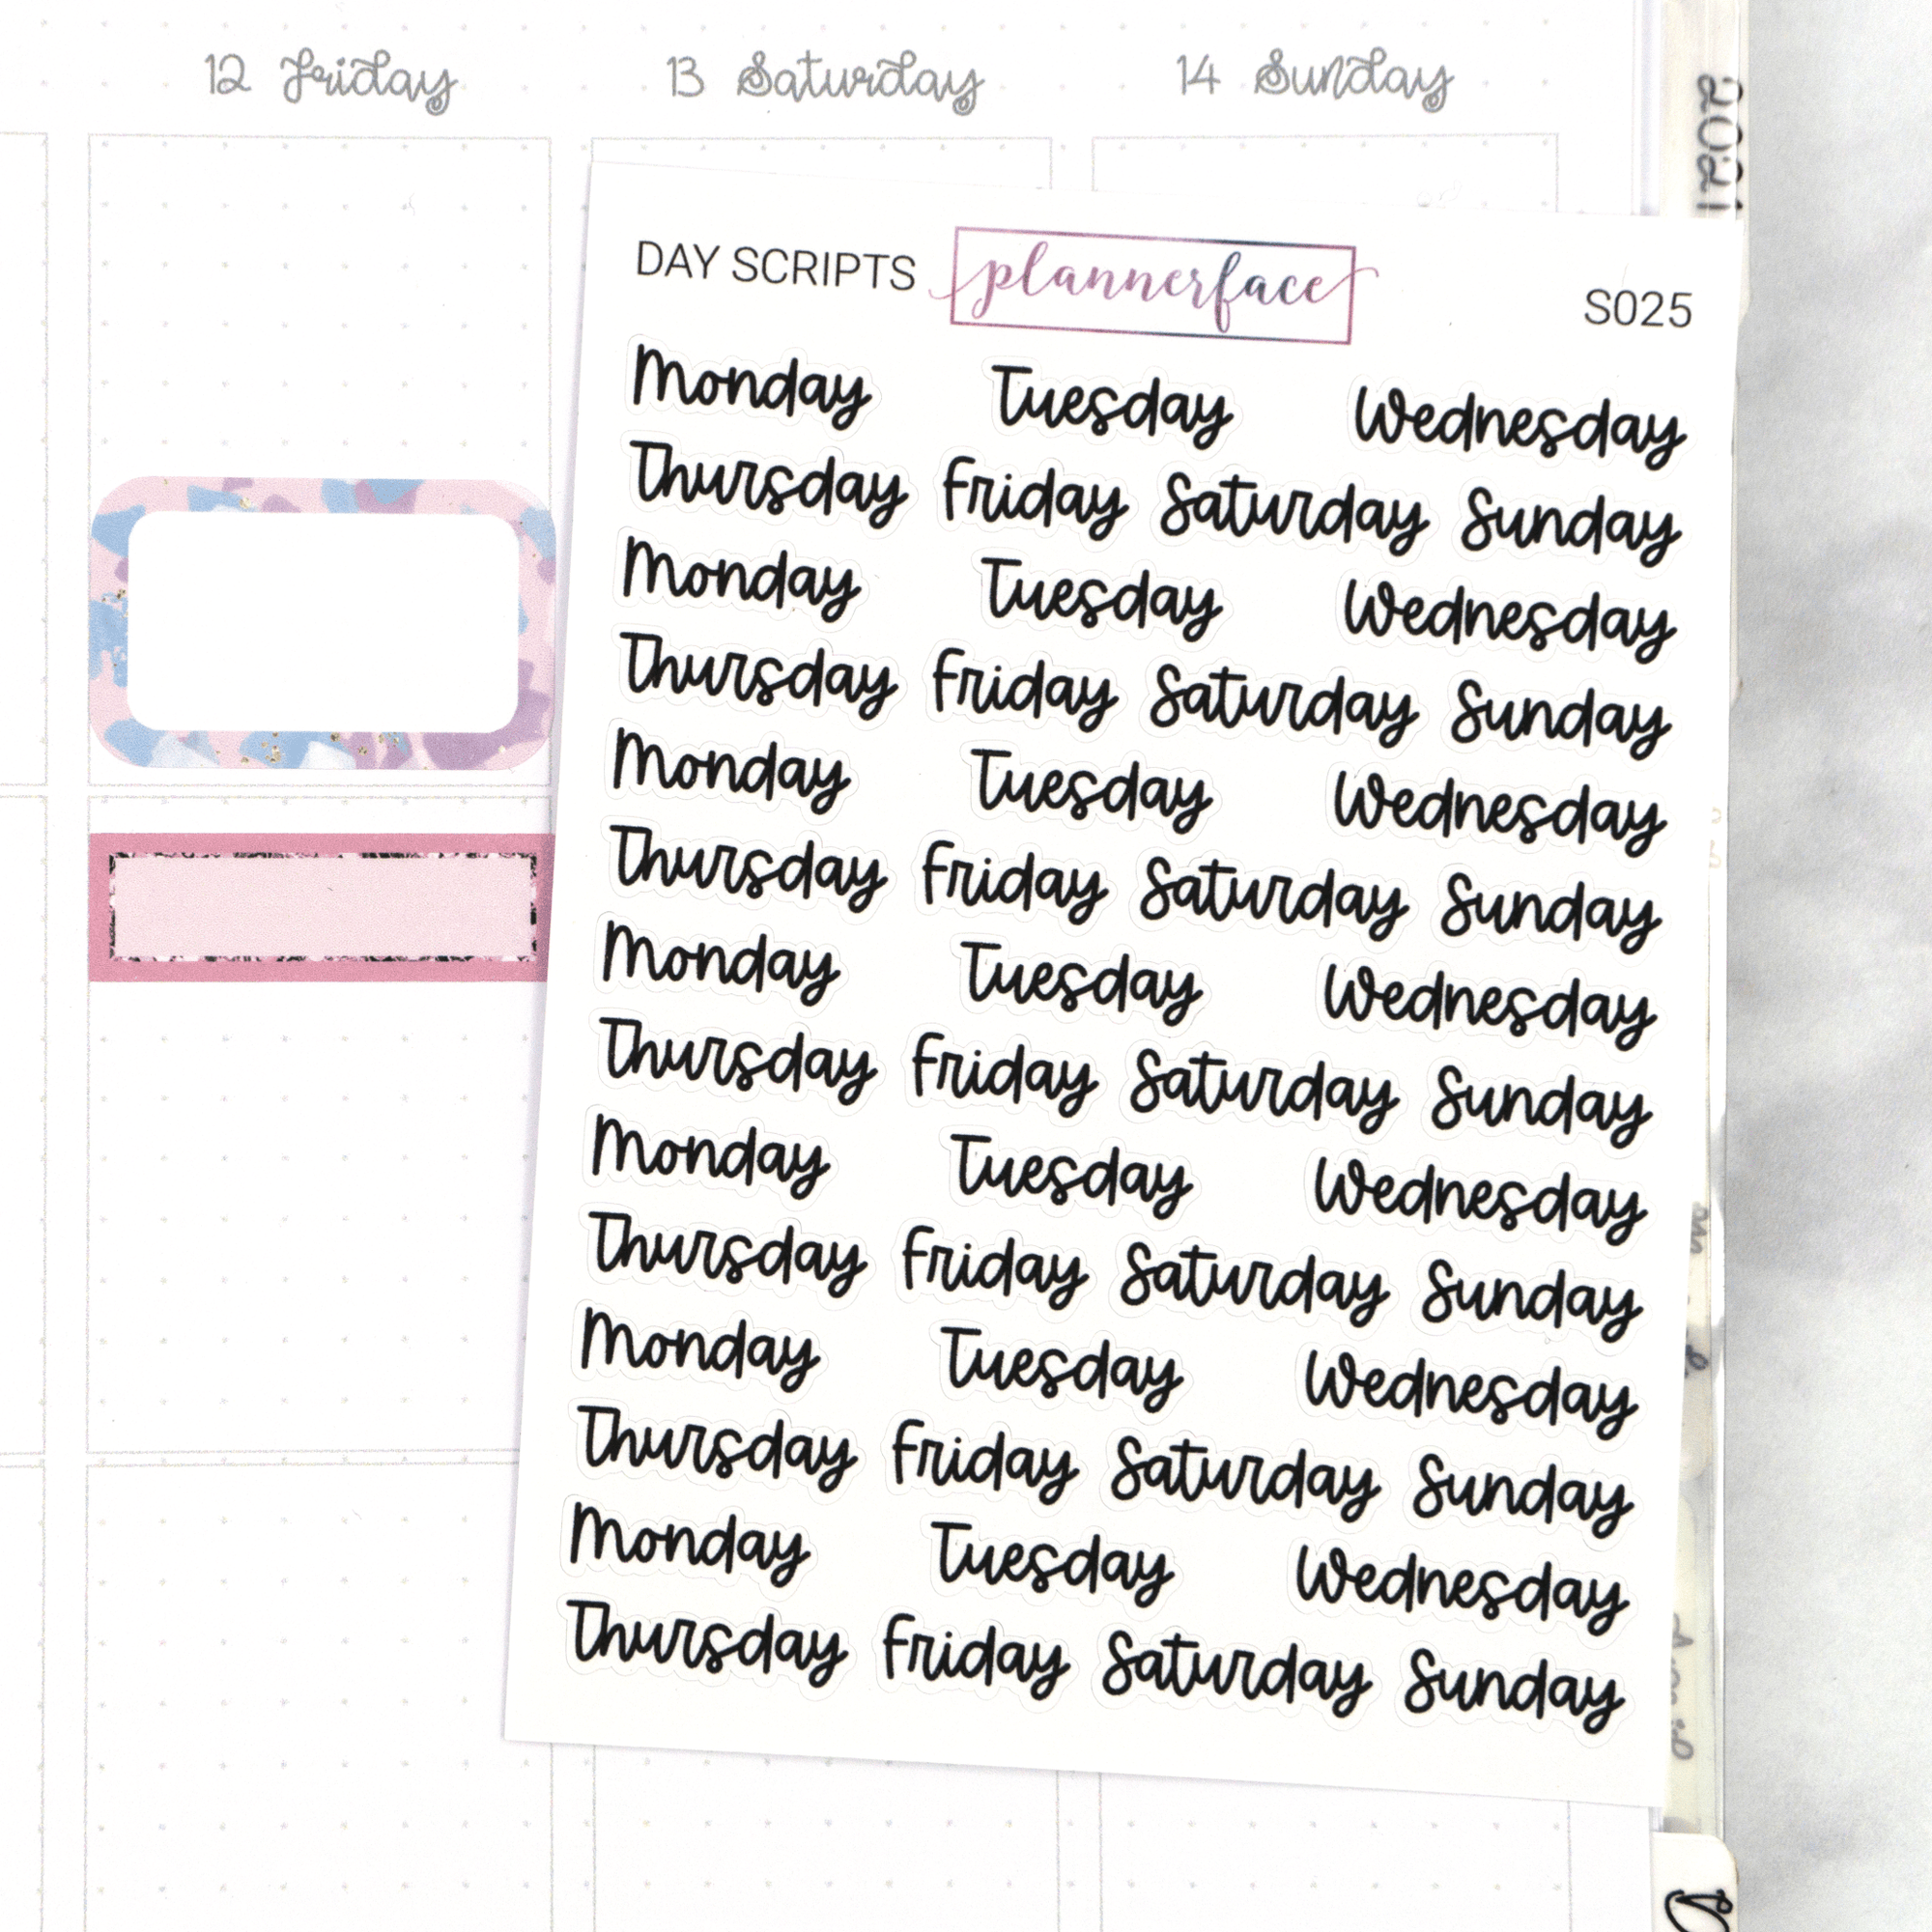 12 Friday 13 Saturday 14 Sunday
2021
DAY SCRIPTS plannerface S025
Monday Tuesday Wednesday
Thursday Friday Saturday Sunday
Monday Tuesday Wednesday
Thursday Friday Saturday Sunday
Monday Tuesday Wednesday
Thursday Friday Saturday Sunday
Monday Tuesday Wednesday
Thursday Friday Saturday Sunday
Monday Tuesday Wednesday
Thursday Friday Saturday Sunday
Monday Tuesday Wednesday
Thursday Friday Saturday Sunday
Monday Tuesday Wednesday
Thursday Friday Saturday Sunday